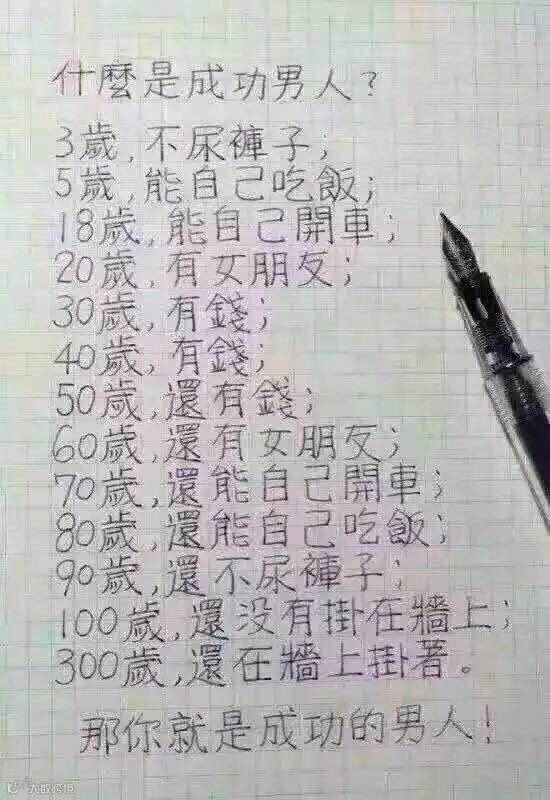 什麼是成功男人?
3歲,不尿褲子;
5歲,能自己吃飯;
18歲,能自己開車;
20歲,有女朋友;
30歲,有錢;
40歲,有錢;
50歲,還有錢;
60歲,還有女朋友;
70歲,還能自己開車;
80歲,還能自己吃飯;
90歲,還不尿褲子;
100歲,還没有掛在牆上;
300歲,還在牆上掛著。
那你就是成功的男人!